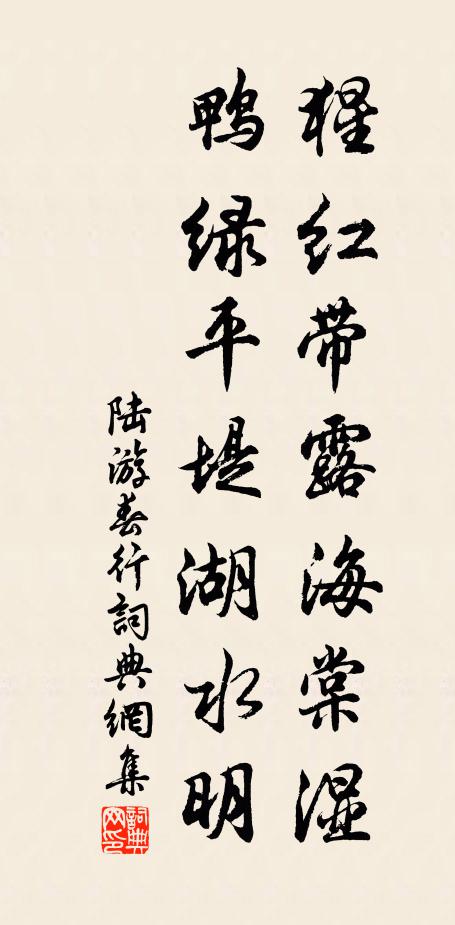 猩红带露海棠湿
鸭绿平堤湖水明
陆游春行詞典網集
詞典网印